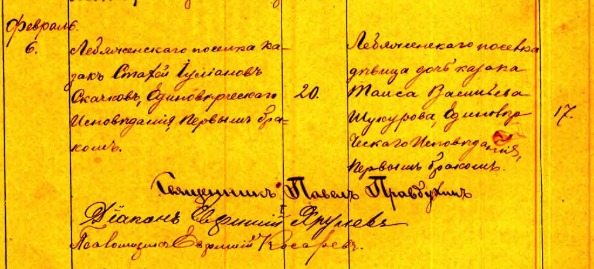 Февраль
6.
Лебяженскаго поселка ка-
закъ Стахей Іуліановъ
Скачковъ, Единовѣрческаго
Исповѣданія, первымъ бра-
комъ.
20.
Лебяженскаго поселка
дѣвица дочь казака
Таиса Васильева
Шукурова, Единовѣр-
ческаго Исповѣданія,
первымъ бракомъ.
17.
Священникъ Павелъ Правдухинъ
Діаконъ Евфимій Хрулевъ
Псаломщикъ Евфимій Косаревъ.